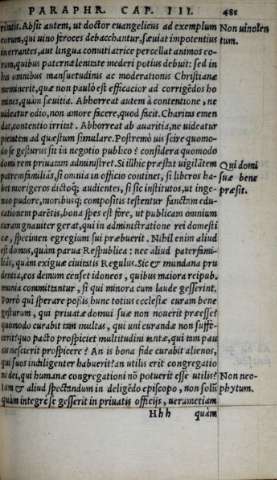 PARAPHR. CAP. III. 481
Absit autem, ut doctor euangelicus ad exemplum Non uinolen
eorum, qui uino feroces debacchantur, sæuiat impotentius tum.
in errantes, aut lingua conuitiatrice percellat animos eo-
rum, quibus paterna lenitate mederi potius debuit: sed in
his omnibus mansuetudinis ac moderationis Christianæ
meminerit, quæ non paulò est efficacior ad corrigẽdos ho
mines, quàm sæuitia. Abhorreat autem à contentione, ne
uideatur odio, non amore facere, quod facit. Charius emen
dat, contentio irritat. Abhorreat ab auaritia, ne uideatur
pietatem ad quæstum simulare. Postremò uis scire quomo-
do se gesturus sit in negotio publico? considera quomodo
domi rem priuatam administret. Si illhic præstat uigilãtem Qui domi
patremfamiliâs, si omnia in officio continet, si liberos ha- suæ bene
bet morigeros dictoq; audientes, si sic institutos, ut inge- præsit.
nuo pudore, moribusq; compositis testentur sanctam edu-
cationem parẽtis, bona spes est fore, ut publicam omnium
curam gnauiter gerat, qui in administratione rei domesti
cæ, specimen egregium sui præbuerit. Nihil enim aliud
est domus, quàm parua Respublica: nec aliud paterfami-
liâs, quàm exiguæ ciuitatis Regulus. Sic & mundana pru
dentia, eos demum censet idoneos, quibus maiora reipub.
munia committantur, si qui minora cum laude gesserint.
Porrò qui sperare possis hunc totius ecclesiæ curam bene
gesturum, qui priuatæ domui suæ non nouerit præesse?
quomodo curabit tam multas, qui uni curandæ non suffe-
cerit? quo pacto prospiciet multitudini tantæ, qui tam pau
cis nescierit prospicere? An is bona fide curabit alienos,
qui suos indiligenter habuerit? an utilis erit congregatio
ni dei, qui humanæ congregationi nõ potuerit esse utilis? Non neo-
Iam & aliud spectandum in deligẽdo episcopo, non solũ phytum.
quàm integre se gesserit in priuatis officijs, uerumetiam
Hhh quàm